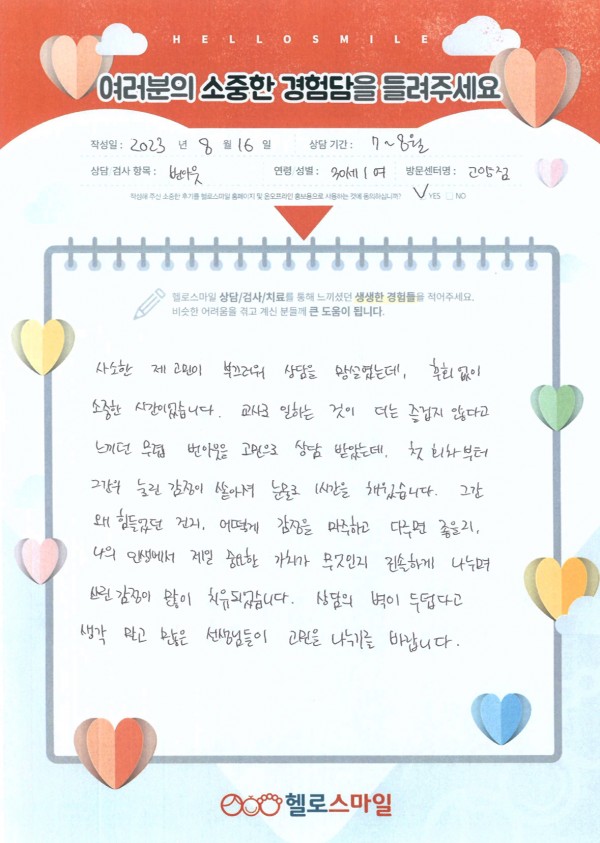 HELLOSMILE
여러분의 소중한 경험담을 들려주세요
작성일 : 2023 년 8 월 16 일 상담 기간 : 7~8월
상담 검사 항목 : 번아웃 연령 성별 : 30세 / 여 방문센터명 : 고양점
작성해 주신 소중한 후기를 헬로스마일 홈페이지 및 온오프라인 홍보용으로 사용하는 것에 동의하십니까? YES NO
헬로스마일 상담/검사/치료를 통해 느끼셨던 생생한 경험들을 적어주세요.
비슷한 어려움을 겪고 계신 분들께 큰 도움이 됩니다.
사소한 제 고민이 부끄러워 상담을 망설였는데, 후회 없이
소중한 시간이었습니다. 교사로 일하는 것이 더는 즐겁지 않다고
느끼던 무렵 번아웃을 고민으로 상담 받았는데, 첫 회차부터
그간의 눌린 감정이 쏟아져 눈물로 1시간을 채웠습니다. 그간
왜 힘들었던 건지, 어떻게 감정을 마주하고 다루면 좋을지,
나의 인생에서 제일 중요한 가치가 무엇인지 진솔하게 나누며
쓰린 감정이 많이 치유되었습니다. 상담의 벽이 두텁다고
생각 말고 많은 선생님들이 고민을 나누기를 바랍니다.
헬로스마일